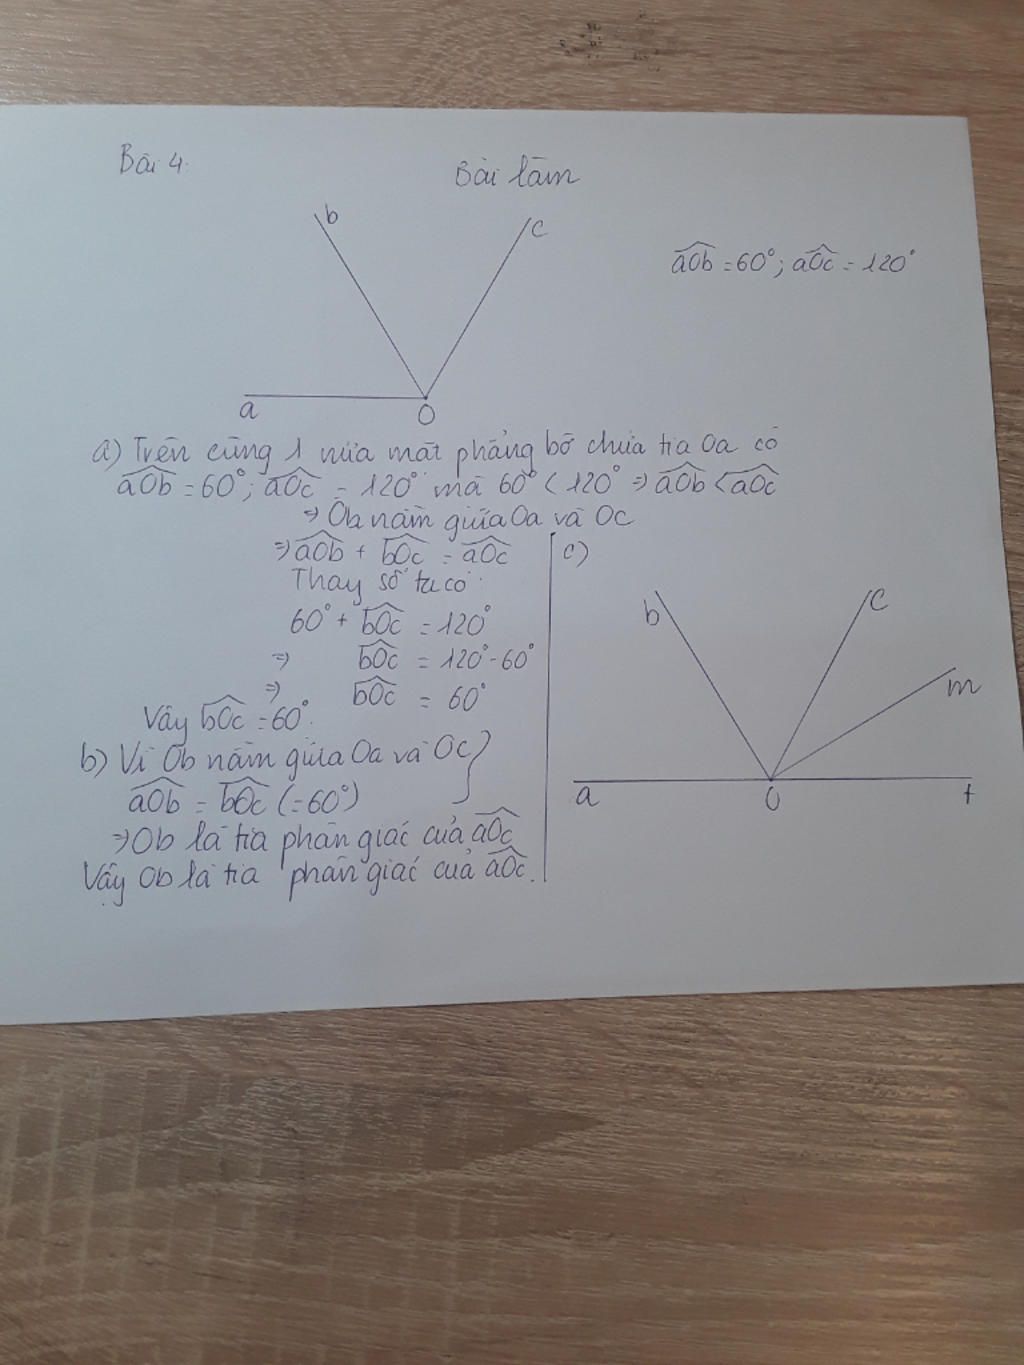 Bài 4:
Bài làm
b
c
a
O
aOb = 60°; aOc = 120°
a) Trên cùng 1 nửa mặt phẳng bờ chứa tia Oa có
aOb = 60°; aOc = 120° mà 60° < 120° => aOb < aOc
=> Ob nằm giữa Oa và Oc
=> aOb + bOc = aOc
Thay số ta có:
60° + bOc = 120°
=> bOc = 120° - 60°
=> bOc = 60°
Vậy bOc = 60°.
b) Vì Ob nằm giữa Oa và Oc }
aOb = bOc (= 60°)
=> Ob là tia phân giác của aOc
Vậy Ob là tia phân giác của aOc.
c)
b
c
m
a
O
t